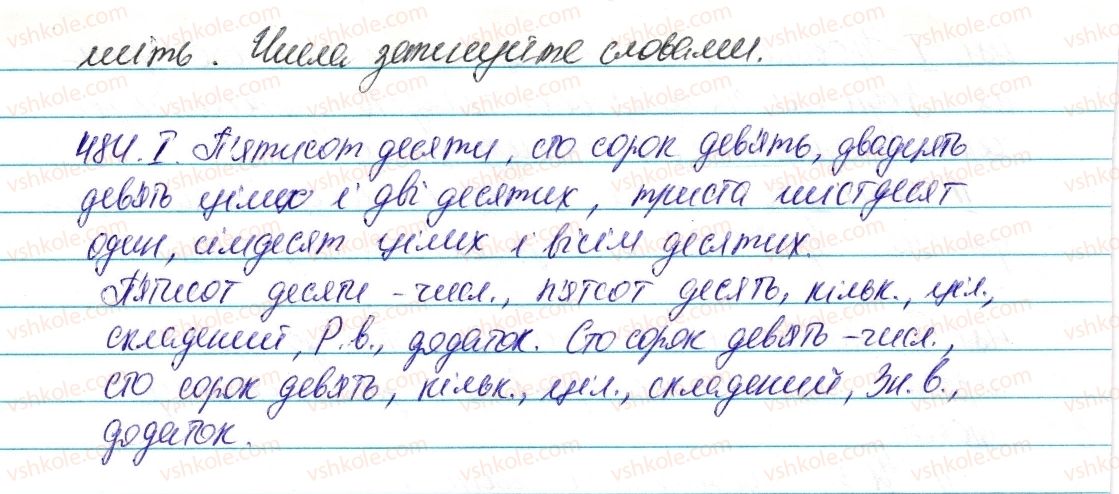 мніть. Числа записуйте словами.
484. I. П'ятисот десяти, сто сорок дев'ять, двадцять
дев'ять цілих і дві десятих, триста шістдесят
один, сімдесят цілих і вісім десятих.
П'ятисот десяти - числ., п'ятсот десять, кільк., ціл.,
складений, Р.в., додаток. Сто сорок дев'ять - числ.,
сто сорок дев'ять, кільк., ціл., складений, Зн. в.,
додаток.